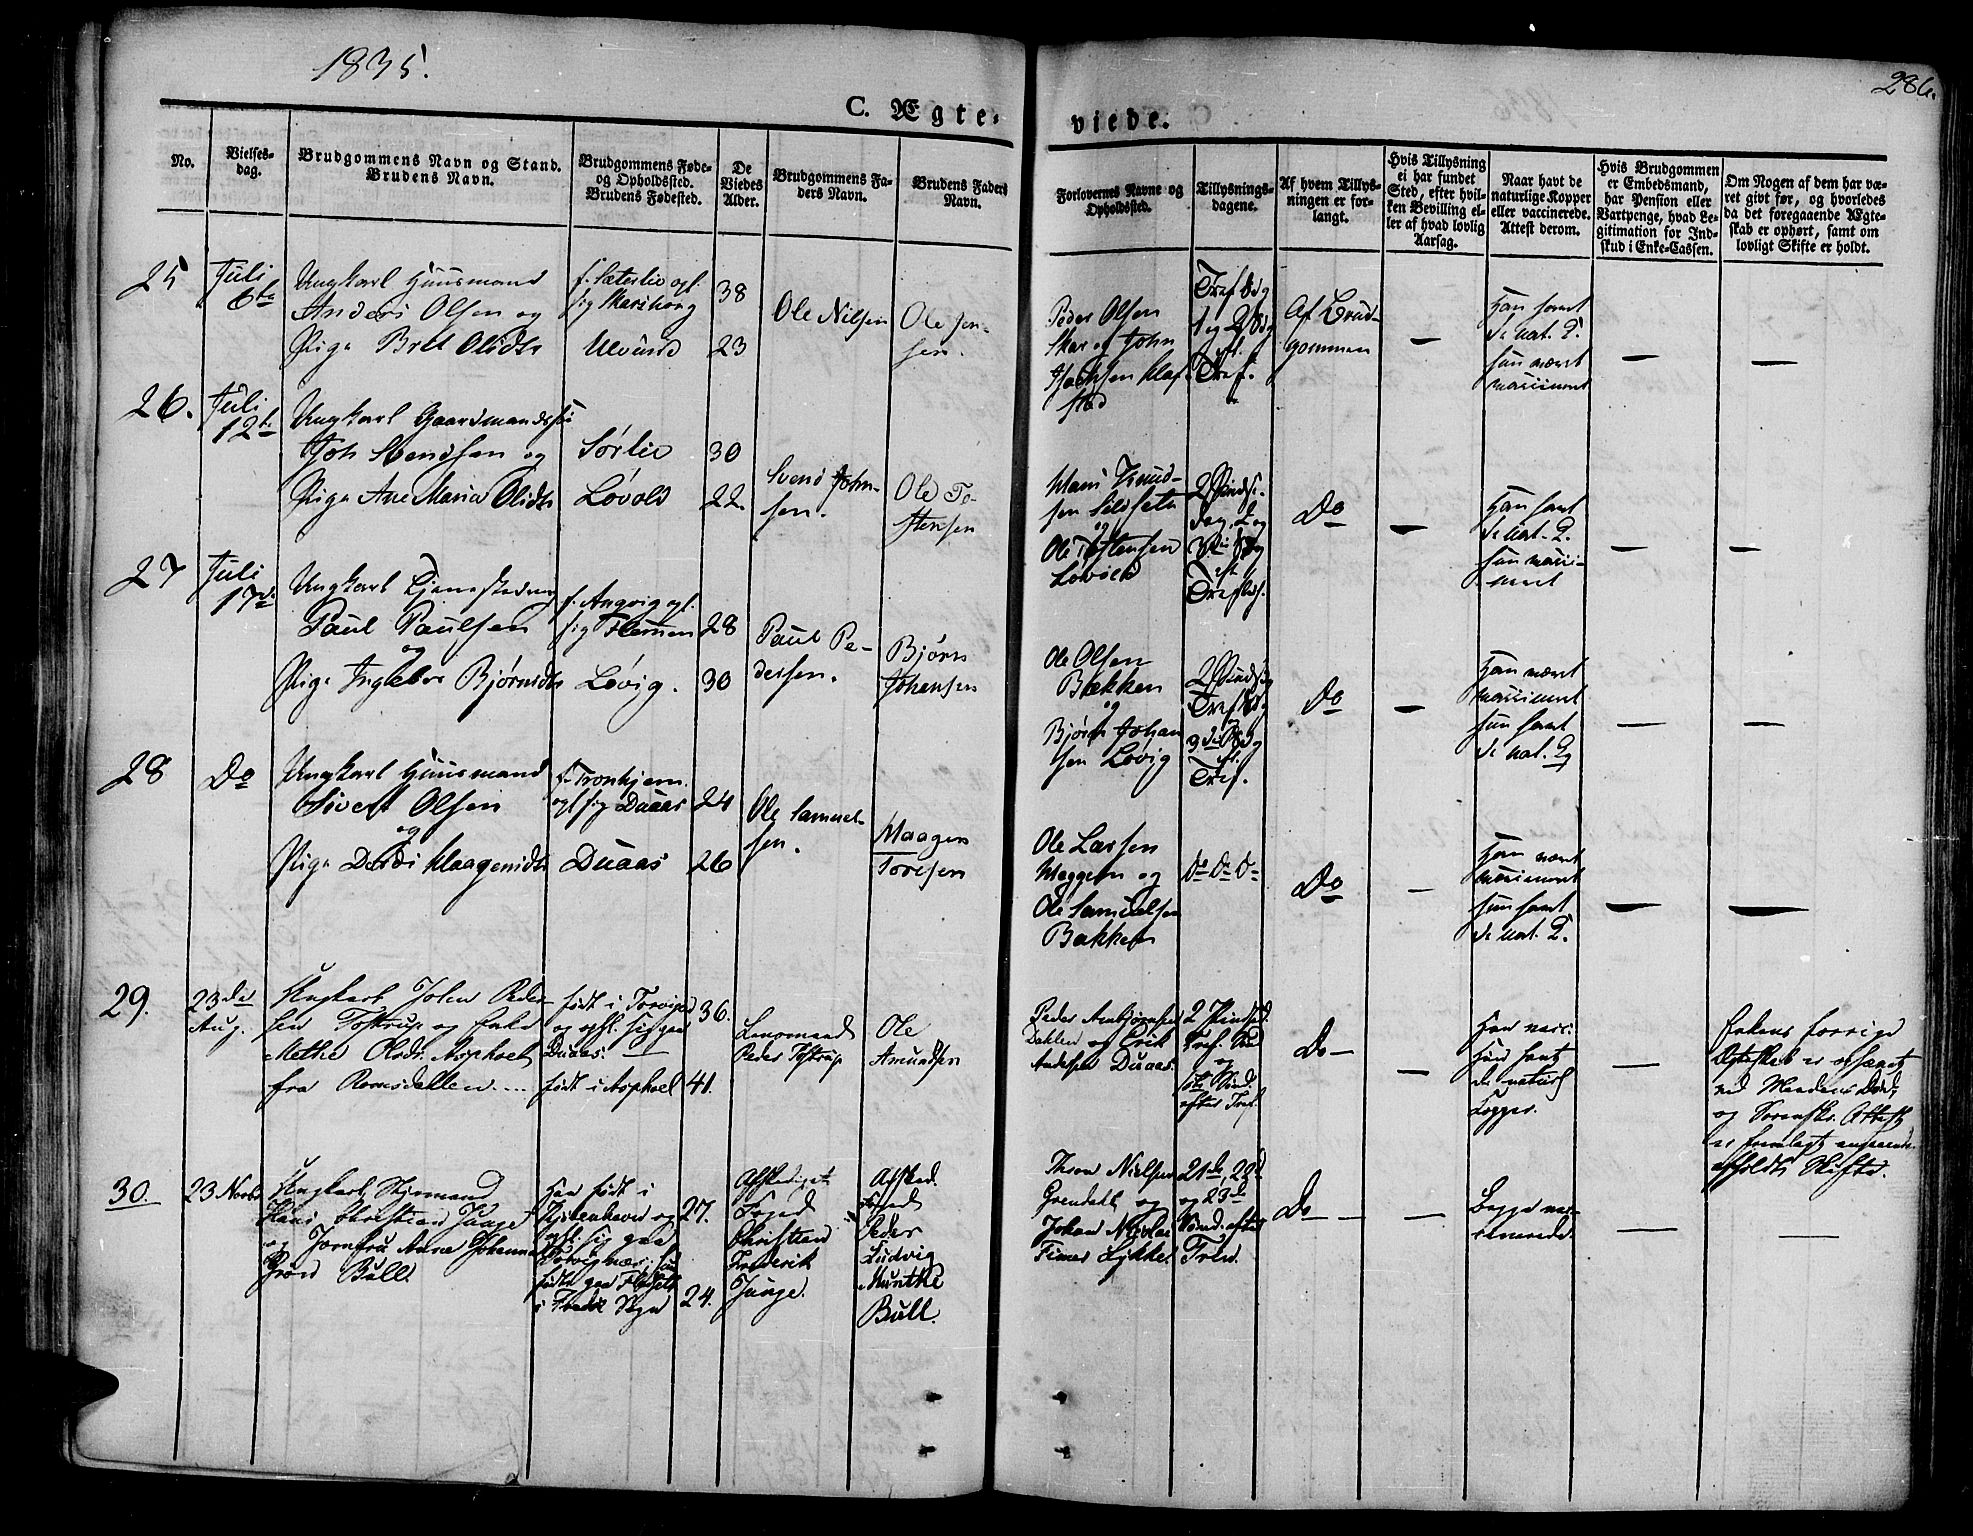 1835.
286.
C. Ægte-
viede.
No.
Vielses-
dag.
Brudgommens Navn og Stand.
Brudens Navn.
Brudgommens Føde-
og Opholdssted.
Brudens Fødested.
De
Viedes
Alder.
Brudgommens Fa-
ders Navn.
Brudens Faders
Navn.
Forlovernes Navne og
Opholdssted.
Tillysnings-
dagene.
Af hvem Tillys-
ningen er for-
langt.
Hvis Tillysning
ei har fundet
Sted, efter hvil-
ken Bevilling el-
ler af hvad lovlig
Aarsag.
Naar havt de
naturlige Kopper
eller vaccinerede.
Attest derom.
Hvis Brudgommen
er Embedsmand,
har Pension eller
Vartpenge, hvad Le-
gitimation for Ind-
skud i Enke-Cassen.
Om Nogen af dem har væ-
ret givt før, og hvorledes
da det foregaaende Ægte-
skab er ophørt, samt om
lovligt Skifte er holdt.
25
Juli
6te
Ungkarl Huusmand
Anders Olsen og
Pige Brit Olsdtr
f. Sæterlie opl.
sig
Ulvund
38
23
Ole Nilsen
Ole Jen-
sen.
Peder Olsen
Skar og John
stad
Tref Sdg
1 og 2 Sdg
ft.
Tref.
Af Brud-
gommen
—
Han havt
de nat. K.
hun været
vaccineret
—
—
26.
Juli
12te
Ungkarl Gaardmandssøn
Joh Svendsen og
Pige Ane Maria Olsdtr
Sørlie
Løvold
30
22
Svend John-
sen.
Ole To-
stensen
Hans Knud-
sen Sildset
og
Ole Tostensen
Løvold
2 Pindse-
dag, 2 og
3die Sdg
eft
Trefoldi.
Do
—
Han havt
de nat. K.
hun vacci-
neret
—
—
27
Juli
17de
Ungkarl Tjenestedreng
Paul Paulsen
og
Pige Ingebor Bjørnsdtr
f. Angvig opl.
sig Flemmen
Løvig.
28
30
Paul Pe-
dersen.
Bjørn
Johansen
Ole Olsen
Bækken
og
Bjørn Johan
sen Løvig
2 Pindsdg
Tref Sdg
og
3die Sdg
ft.
Tref.
Do
—
Han været
vaccineret
hun havt
de nat. K.
—
—
28
Do
Ungkarl Huusmand
Sivert Olsen
og
Pige Dordi Maagensdtr
f. Tronhjem
opl sig Duaas
Duaas
24
26
Ole Samuel-
sen.
Maagen
Toresen
Ole Larsen
Meggem og
Ole Samuelsen
Bækken
Do Do Do
Do
—
Han været
vaccineret
hun havt
de nat. K.
—
—
29.
23de
Aug.
Ungkarl John Peder-
sen Tostrup og Enke
Methe Olsdr. Asphoel
fra Romsdallen....
født i Torvigen
og oph. sig paa
Duaas. —
født i Asphoel
36.
41.
Lensmand
Peder Tostrup
Ole
Amundsen
Peder Arnbjørnsen
Dahlen og Erik
Andersen Duaas.
2 Pindsed.
Tref. Sønd
og
1te Sønd.
efter Tref.
Do —
—
Han vacc.
hun havt
de naturl
Kopper.
—
Enkens forrige
Ægteskab er ophævet
ved Mandens Død,
og Sorenskr. Attest
er fremlagt angaaende
afholdt Skifte.
30.
23 Novbr
Ungkarl, Styrmand
Hans Christian Junge
og Jomfru Anna Johanna
Grøn Bull.
Han født i
Kjøbenhavn og
oph. sig paa
født paa
i
27.
24.
Afskediget
Foged
Christian
Frederik
Junge.
Afsked.
Foged
Peder
Ludvig
Munthe
Bull.
Iver Nielsen
Grendall og
Johan Nicolai
Finne Lykke.
21de, 22d.
og 23de
Sønd. efter
Tred.
Do — —
—
Begge vac-
cinerede.
—
—